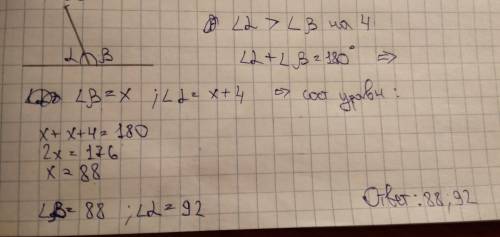 ∠α > ∠β на 4
∠α β
∠α + ∠β = 180° ⇒
∠β = x ; ∠α = x + 4 ⇒ сост уравн :
x + x + 4 = 180
2x = 176
x = 88
∠β = 88 ; ∠α = 92
Ответ : 88 ; 92